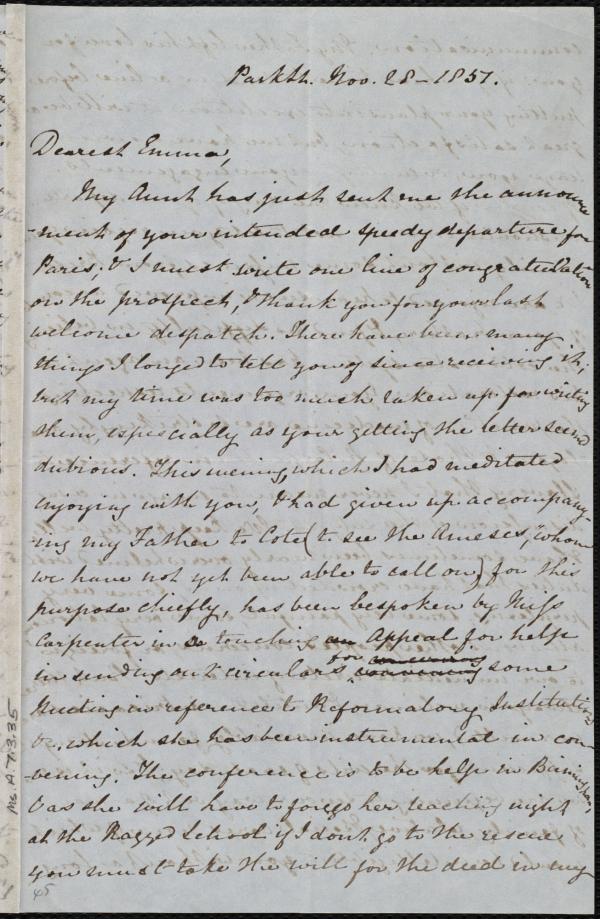 Parkst. Nov. 28 - 1851.
Dearest Emma,
My Aunt has just sent me the announce
-ment of your intended speedy departure for
Paris; & I must write one line of congratulation
on the prospect, & thank you for your last
welcome despatch. There have been many
things I longed to tell you of since receiving it;
but my time was too much taken up for writing
them, especially as your getting the letter seem'd
dubious. This evening, which I had meditated
enjoying with you, & had given up accompany-
-ing my Father to Cote (to see the Ameses, whom
we have not yet been able to call on) for this
purpose chiefly, has been bespoken by Miss
Carpenter in a touching Appeal for help
in sending out circulars for some
Meeting in reference to Reformatory Institutions
&c, which she has been instrumental in con-
vening. The conference is to be help in Birmingham,
& as she will have to forego her teaching night
at the Ragged School if I don't go to the rescue
you must take the will for the deed in my
Ms. A. 7.3.35
45